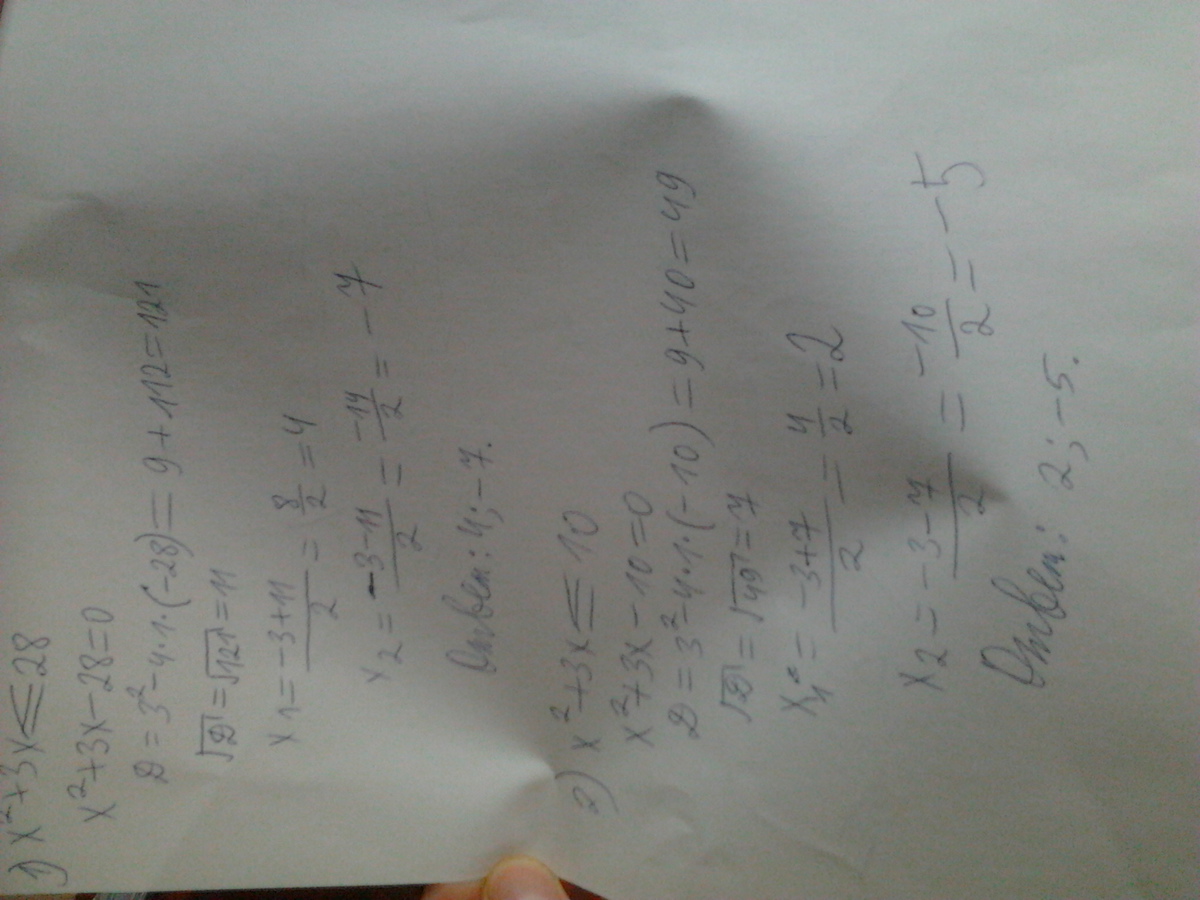 1) x²+3x≤28
x²+3x-28=0
D=3²-4·1·(-28)=9+112=121
√D=√121=11
x1=-3+11/2=8/2=4
x2=-3-11/2=-14/2=-7
Ответ: 4; -7.
2) x²+3x≤10
x²+3x-10=0
D=3²-4·1·(-10)=9+40=49
√D=√49=7
x1=-3+7/2=4/2=2
x2=-3-7/2=-10/2=-5
Ответ: 2; -5.